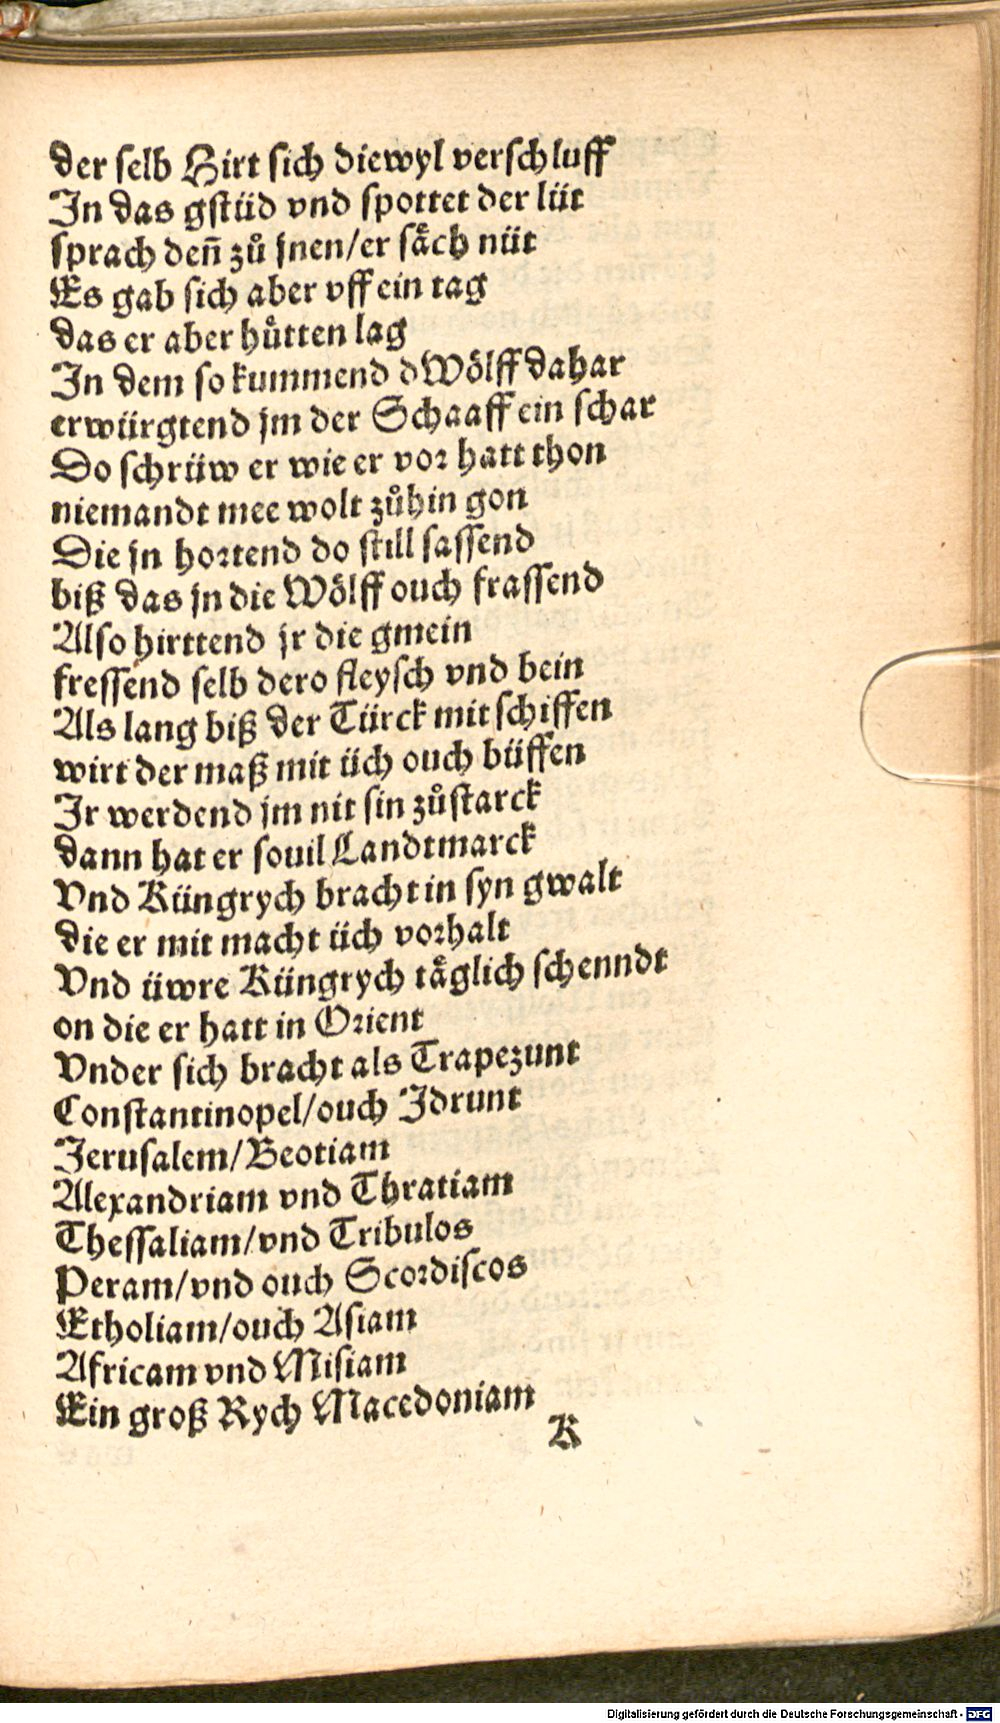 der selb Hirt sich diewyl verschluff
In das gstüd vnd spottet der lüt
sprach deñ zů jnen/er sa�ओch nüt
Es gab sich aber vff ein tag
das er aber hůtten lag
In dem so kummend d Wölff dahar
erwürgtend jm der Schaaff ein schar
Do schrüw er wie er vor hatt thon
niemandt mee wolt zůhin gon
Die jn hortend do still sassend
biß das jn die Wölff ouch frassend
Also hirttend jr die gmein
fressend selb dero fleysch vnd bein
Als lang biß der Türck mit schiffen
wirt der maß mit üch ouch büffen
Ir werdend jm nit sin zůstarck
dann hat er souil Landtmarck
Vnd Küngrych bracht in syn gwalt
die er mit macht üch vorhalt
Vnd üwre Küngrych täglich schenndt
on die er hatt in Orient
Vnder sich bracht als Trapezunt
Constantinopel/ouch Idrunt
Jerusalem/Beotiam
Alexandriam vnd Thratiam
Thessaliam/vnd Tribulos
Peram/vnd ouch Scordiscos
Etholiam/ouch Asiam
Africam vnd Misiam
Ein groß Rych Macedoniam
K
Digitalisierung gefördert durch die Deutsche Forschungsgemeinschaft - DFG